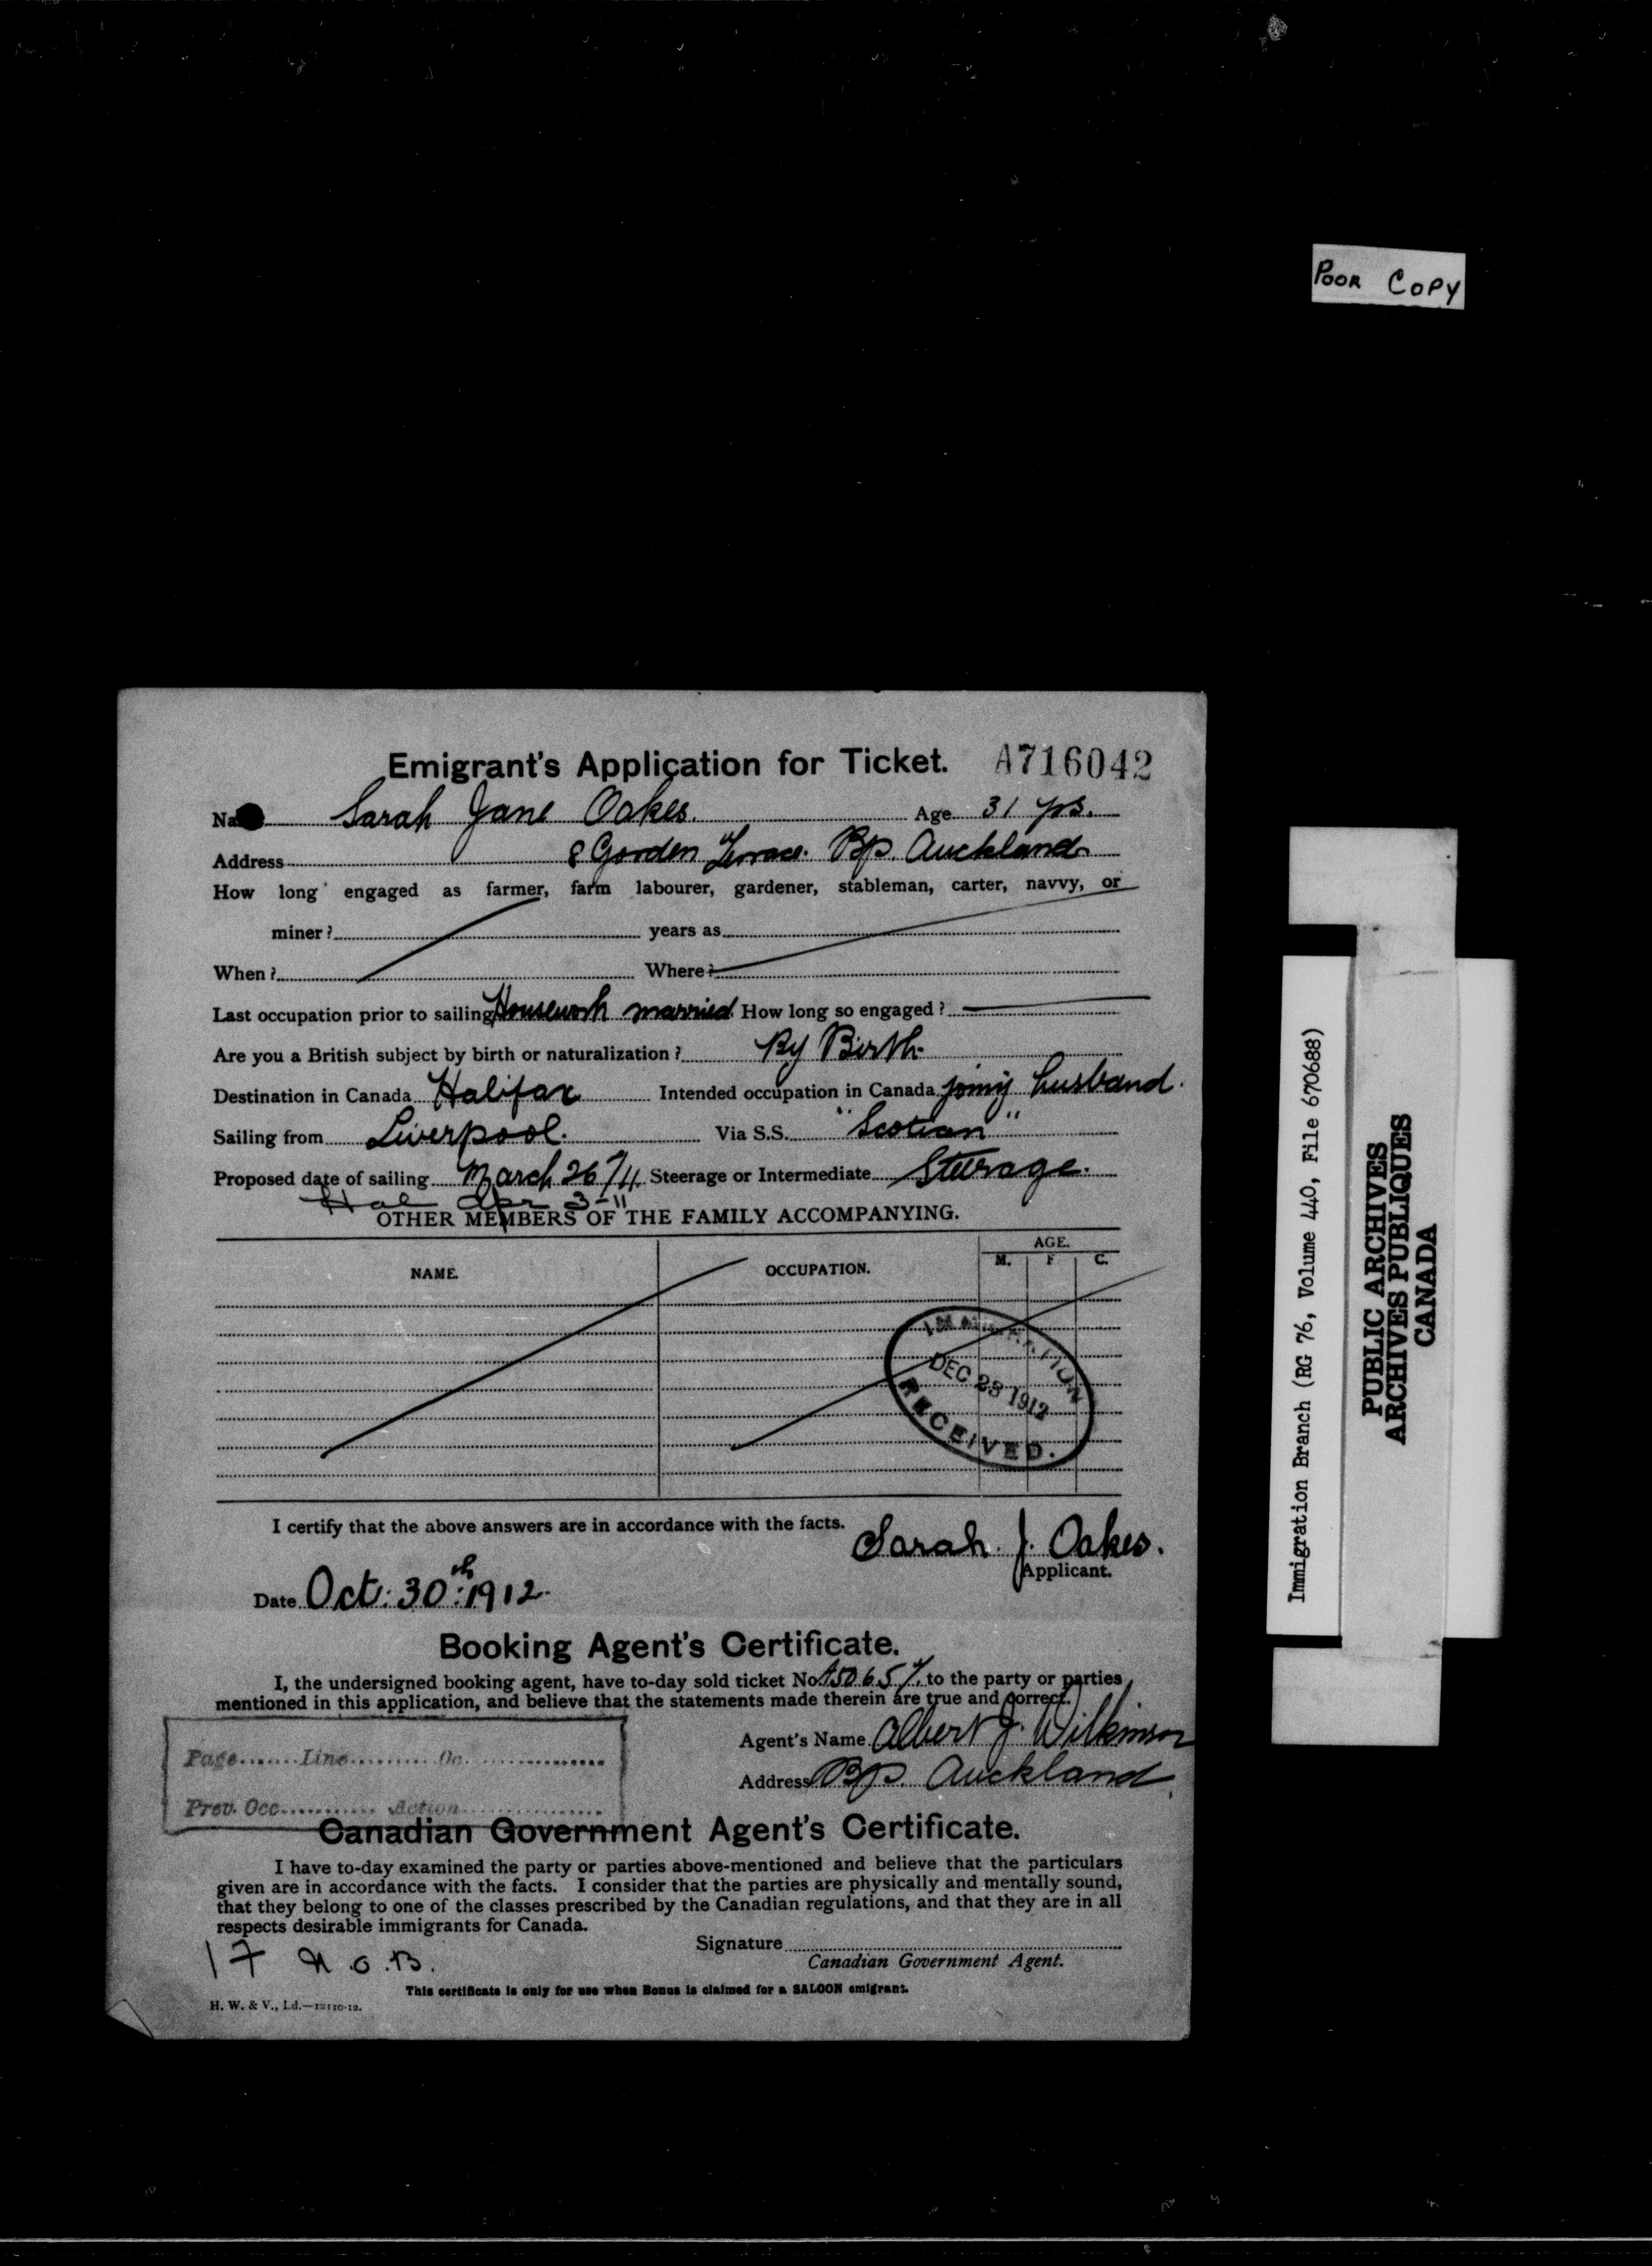 POOR COPY
Emigrant's Application for Ticket. A716042
Na Sarah Jane Oakes. Age 31 yrs.
Address 8 Gordon Terrace. Bp. Auckland.
How long engaged as farmer, farm labourer, gardener, stableman, carter, navvy, or
miner? years as
When? Where?
Last occupation prior to sailing Housework married. How long so engaged?
Are you a British subject by birth or naturalization? By Birth.
Destination in Canada Halifax Intended occupation in Canada joing husband.
Sailing from Liverpool. Via S.S. "Scotian"
Proposed date of sailing March 26/11. Steerage or Intermediate Steerage.
Hal Apr 3-11
OTHER MEMBERS OF THE FAMILY ACCOMPANYING.
NAME. OCCUPATION. AGE.
M. F C.
IMMIGRATION
DEC 23 1912
RECEIVED.
I certify that the above answers are in accordance with the facts.
Sarah. J. Oakes.
Applicant.
Date Oct: 30th: 1912.
Booking Agent's Certificate.
I, the undersigned booking agent, have to-day sold ticket No. to the party or parties
mentioned in this application, and believe that the statements made therein are true and correct.
Agent's Name Albert J. Wilkinson
Address Bp. Auckland
Page Line Oc.
Prev. Occ. Action
Canadian Government Agent's Certificate.
I have to-day examined the party or parties above-mentioned and believe that the particulars
given are in accordance with the facts. I consider that the parties are physically and mentally sound,
that they belong to one of the classes prescribed by the Canadian regulations, and that they are in all
respects desirable immigrants for Canada.
Signature
Canadian Government Agent.
17 N.O.B.
This certificate is only for use when Bonus is claimed for a SALOON emigrant.
H. W. & V., Ld.—12110-12.
Immigration Branch (RG 76, Volume 440, File 670688)
PUBLIC ARCHIVES
ARCHIVES PUBLIQUES
CANADA